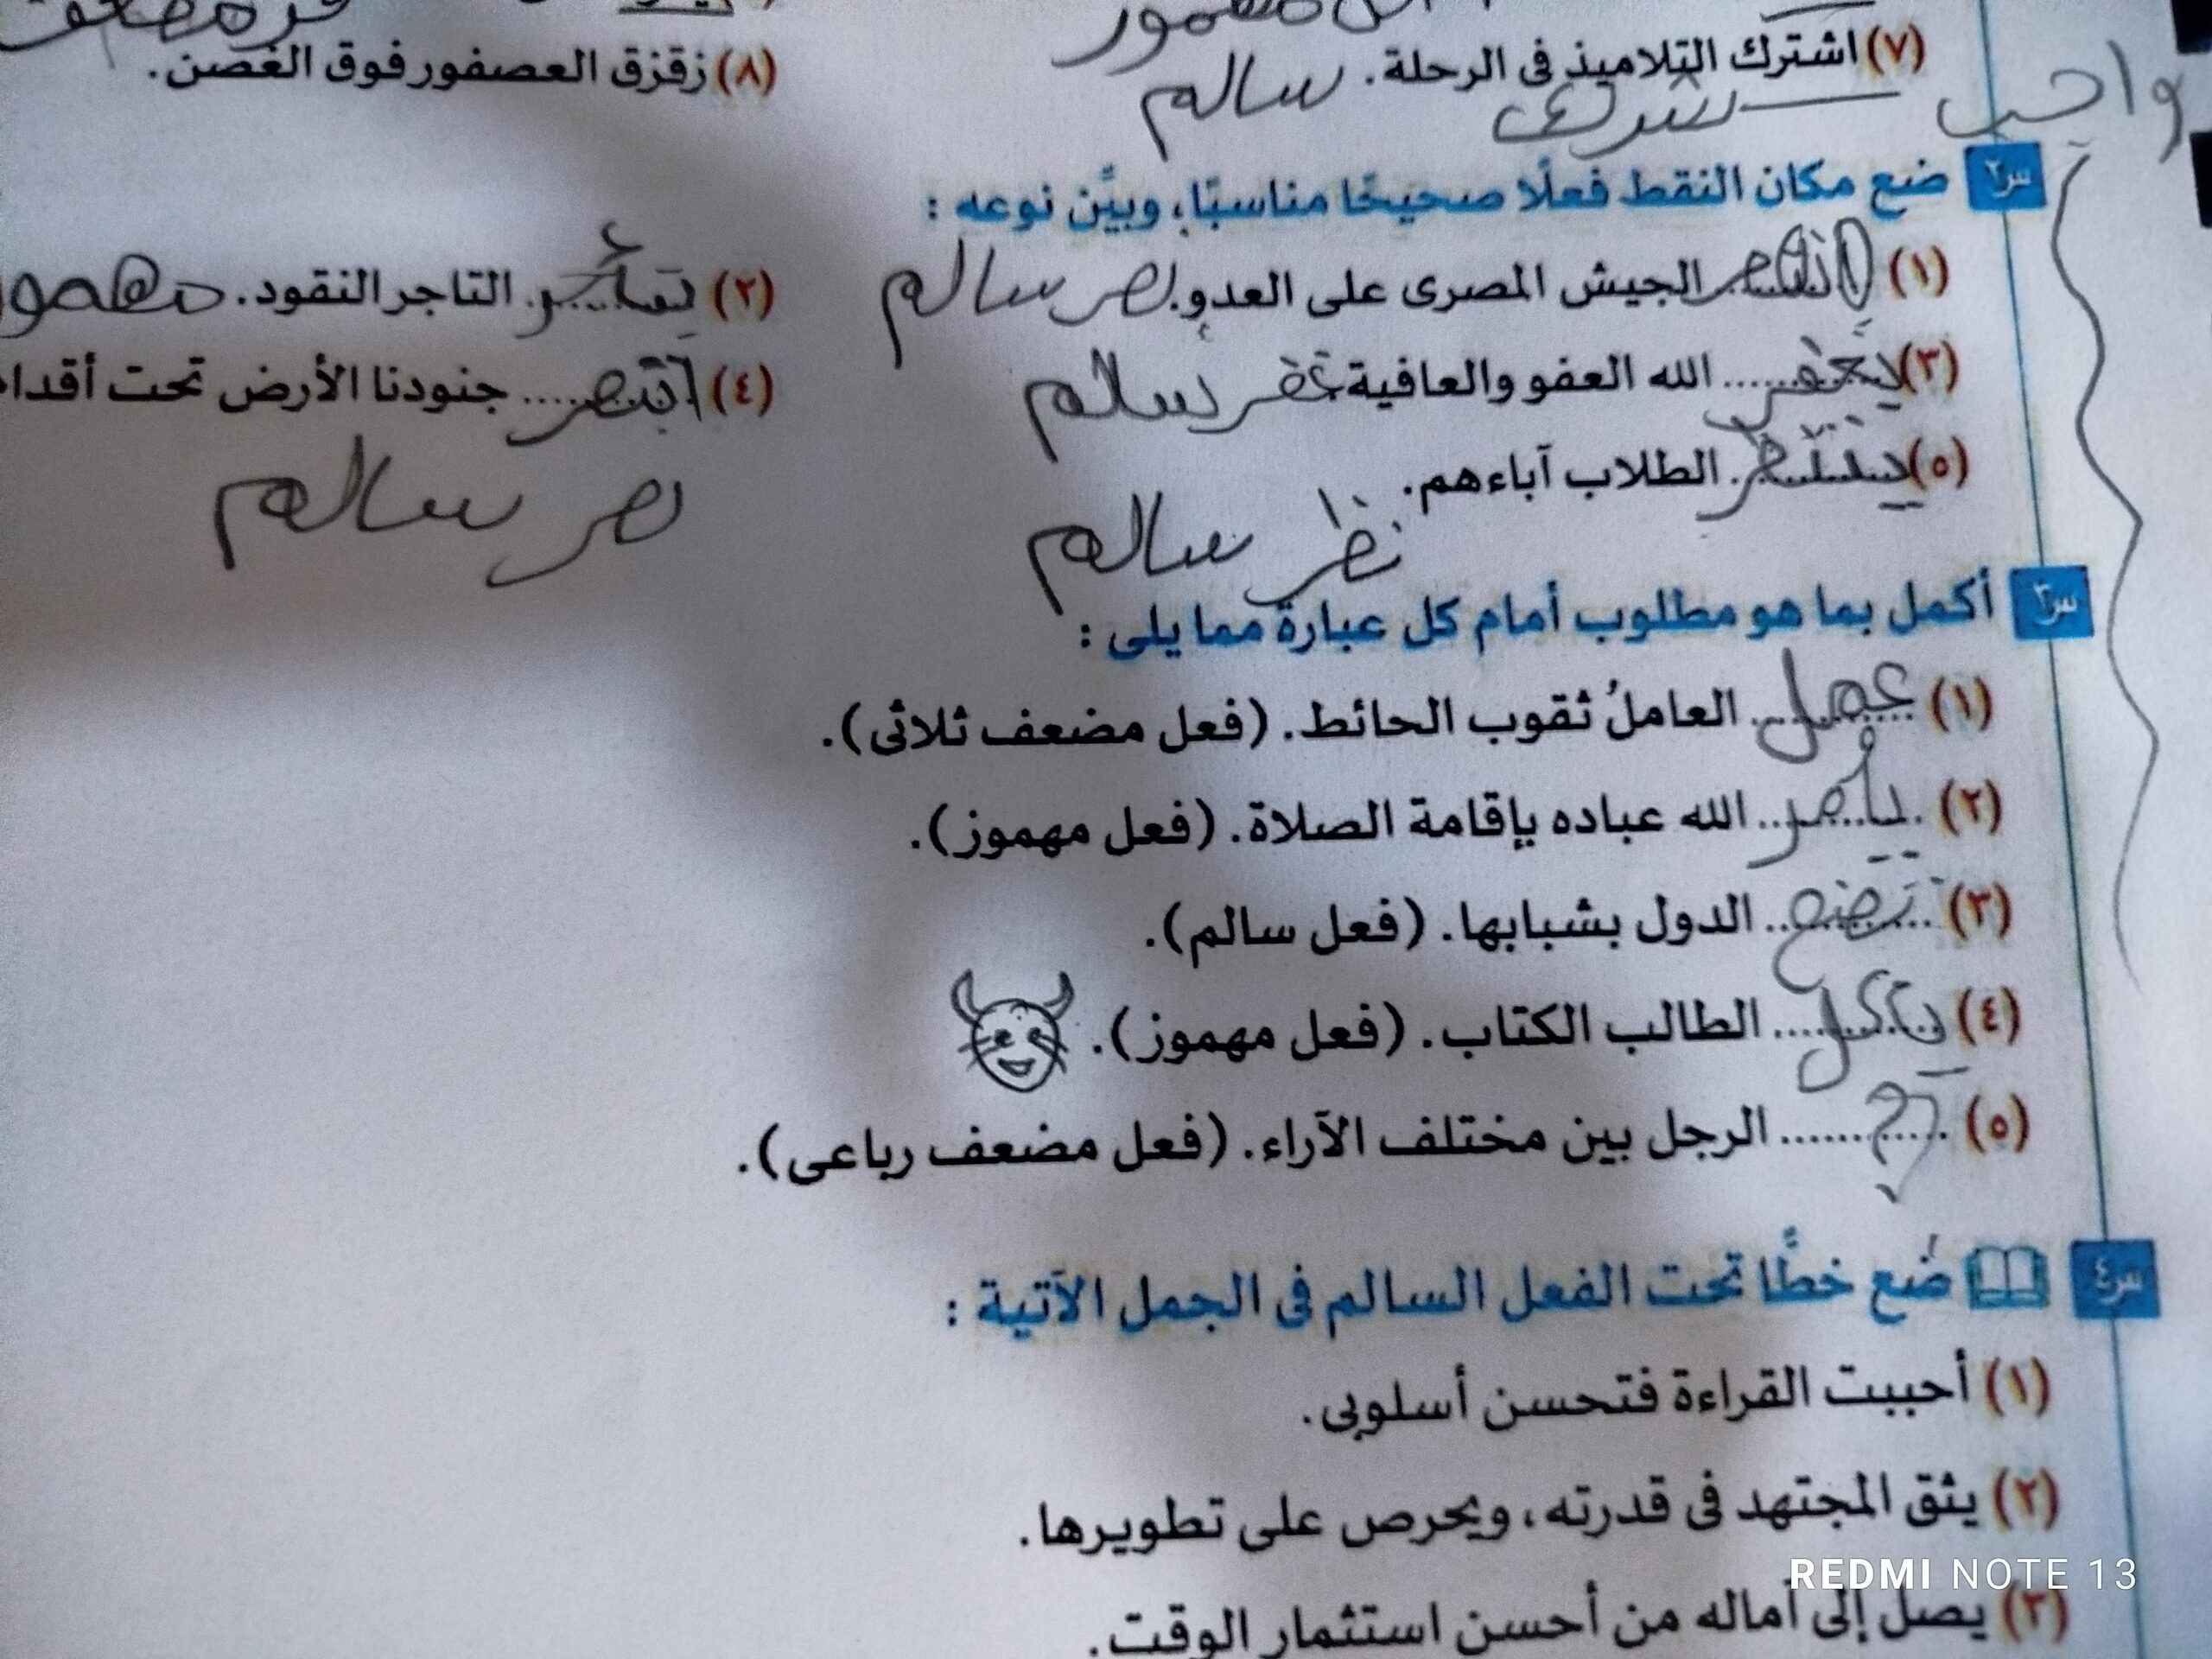 (٧) اشترك التلاميذ فى الرحلة. سالم
(٨) زقزق العصفور فوق الغصن.
واجب
س٢ ضع مكان النقط فعلًا صحيحًا مناسبًا، وبيِّن نوعه :
(١) انتصر الجيش المصرى على العدو. نصر سالم
(٢) ...... التاجر النقود.
(٣) ...... الله العفو والعافية غفر سالم
(٤) ...... جنودنا الأرض تحت
(٥) ينتظر الطلاب آباءهم.
نظر سالم
سالم
س٣ أكمل بما هو مطلوب أمام كل عبارة مما يلى :
(١) عمل العاملُ ثقوب الحائط. (فعل مضعف ثلاثى).
(٢) يأمر الله عباده بإقامة الصلاة. (فعل مهموز).
(٣) ...... الدول بشبابها. (فعل سالم).
(٤) ...... الطالب الكتاب. (فعل مهموز).
(٥) ...... الرجل بين مختلف الآراء. (فعل مضعف رباعى).
س٤ ضع خطًّا تحت الفعل السالم فى الجمل الآتية :
(١) أحببت القراءة فتحسن أسلوبى.
(٢) يثق المجتهد فى قدرته، ويحرص على تطويرها.
(٣) يصل إلى أماله من أحسن استثمار الوقت.
REDMI NOTE 13